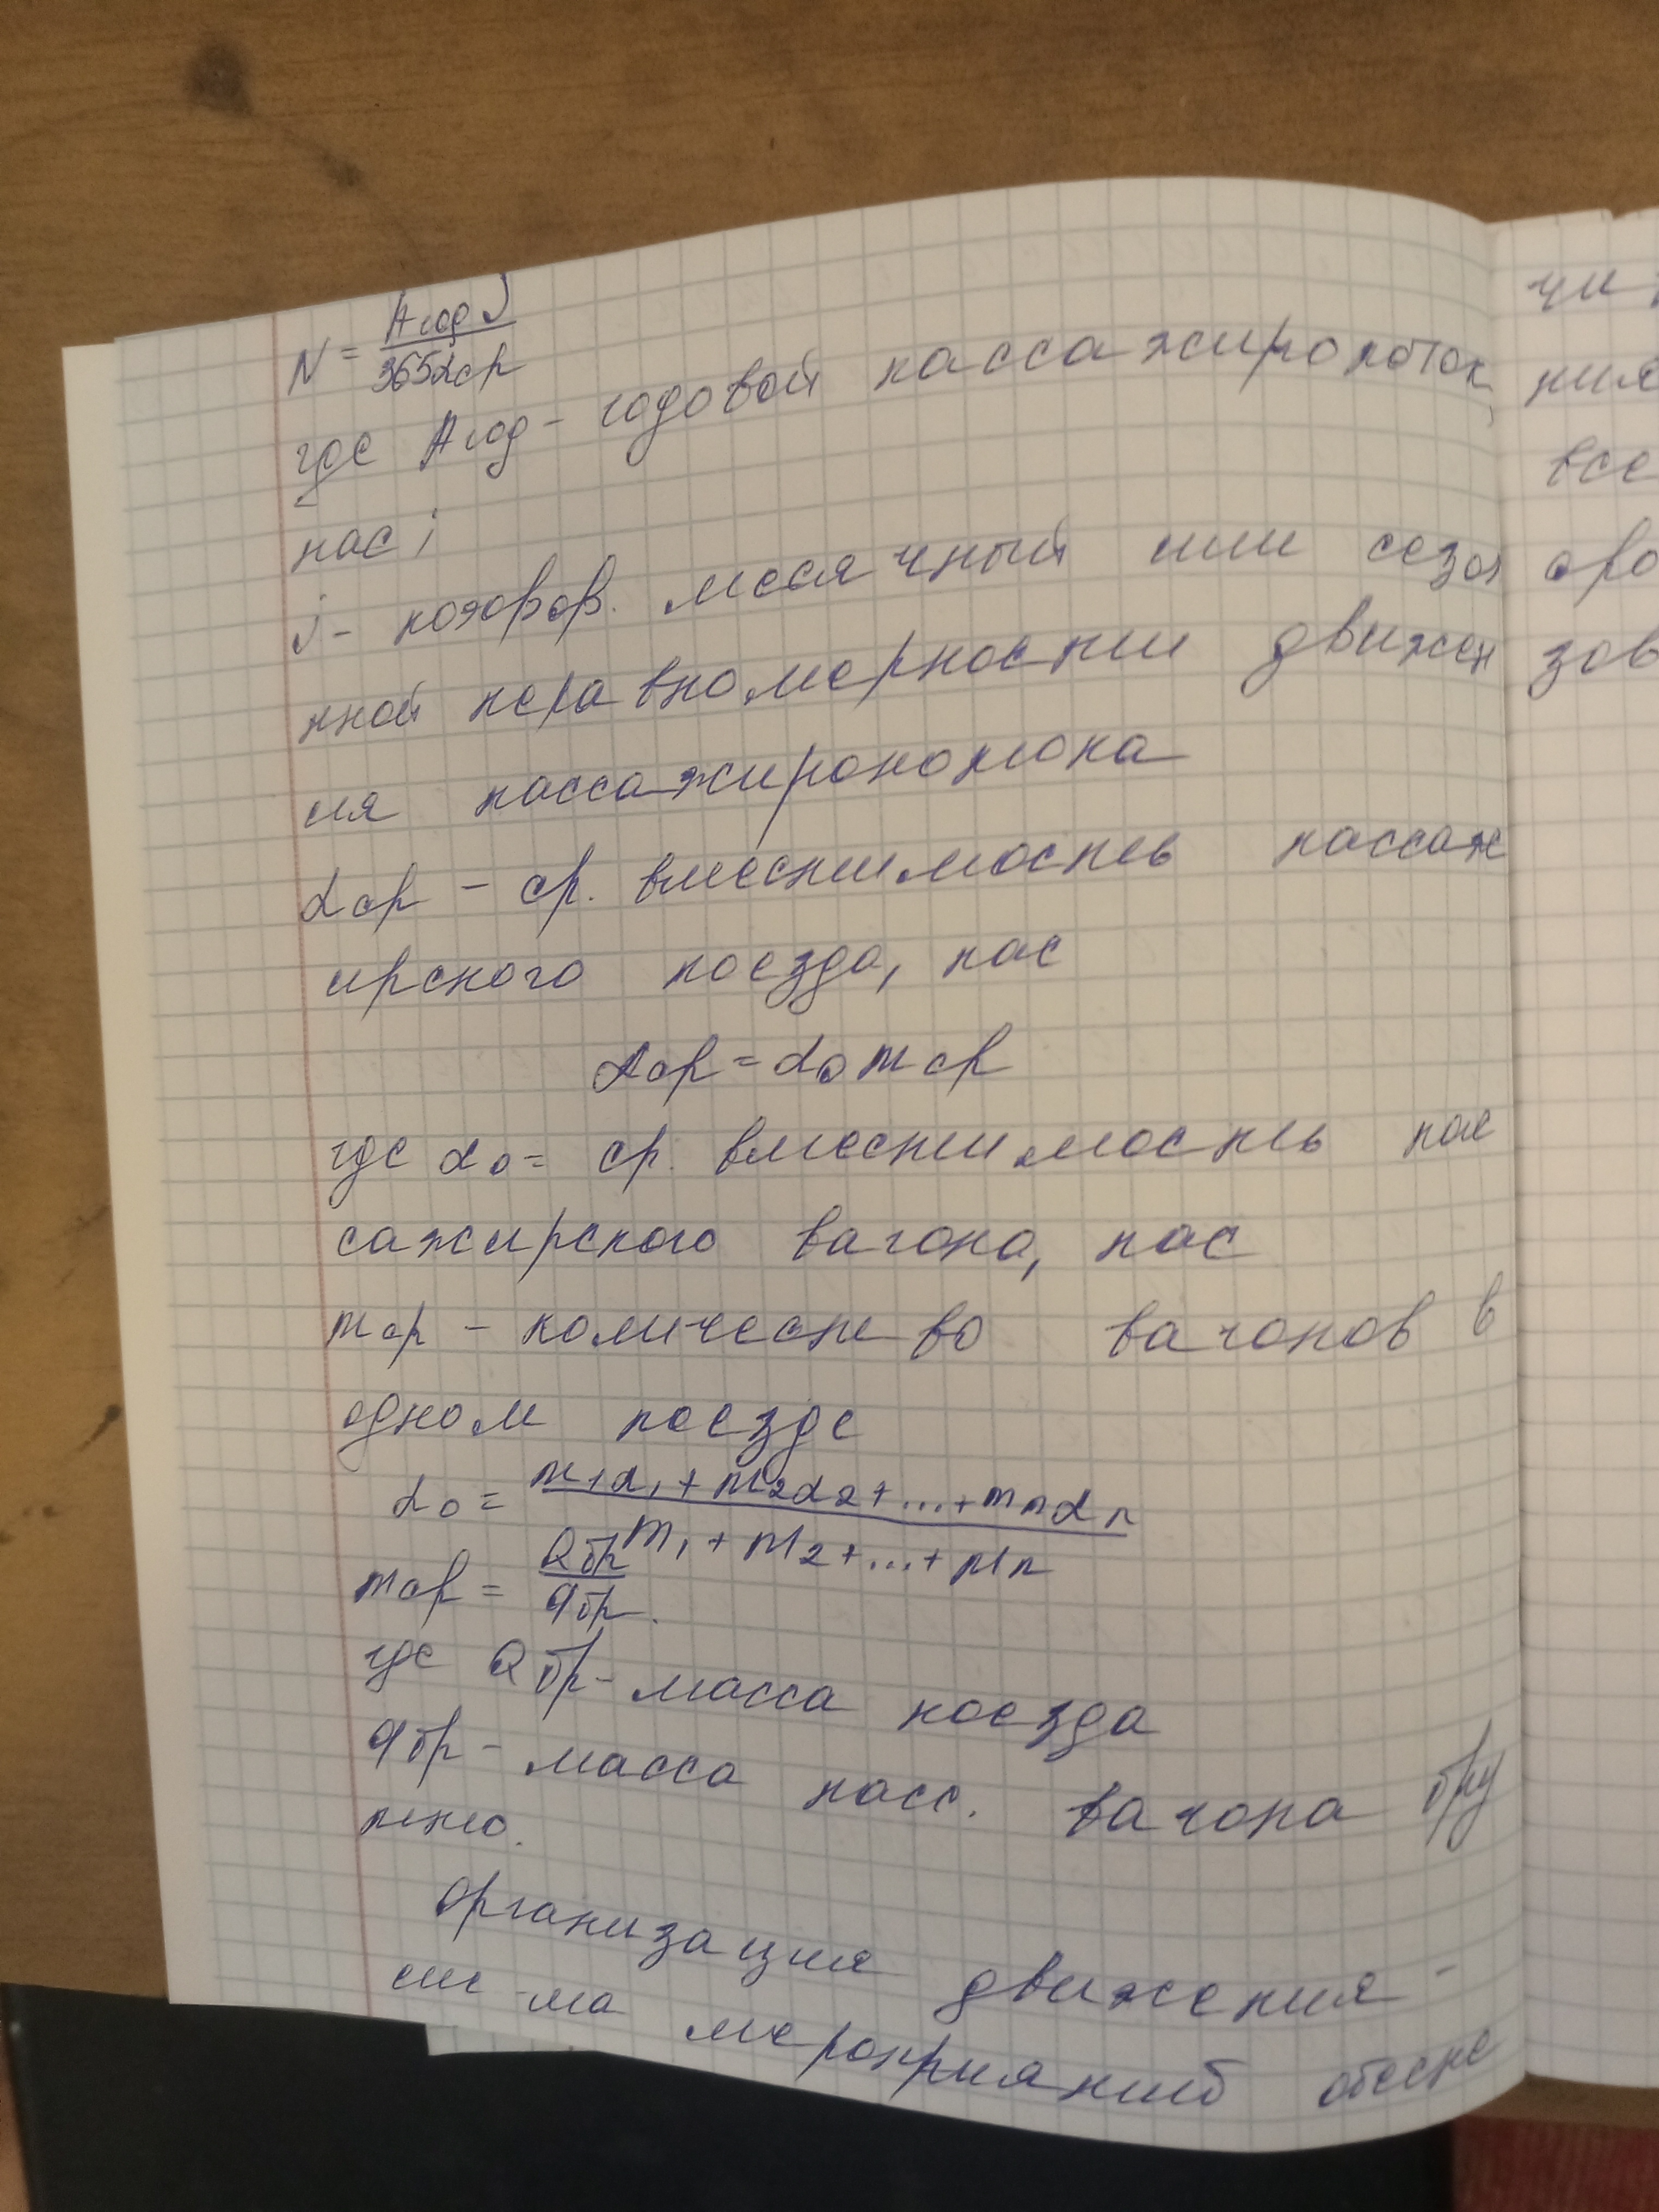 N = Aгод j / 365αср
где Aгод - годовой пассажиропоток,
пас;
j - коэфф. месячный или сезон
нной неравномерности движен
ия пассажиропотока
αср - ср. вместимость пассаж
ирского поезда, пас
αср = α0 mср
где α0 = ср. вместимость пас
сажирского вагона, пас
mср - количество вагонов в
одном поезде
α0 = m1α1 + m2α2 + ... + mnαn / m1 + m2 + ... + mn
mср = Qбр / qбр.
где Qбр - масса поезда
qбр - масса пасс. вагона бру
тто.
Организация движения -
ма мероприятий обеспе
чи
ния
все
зов